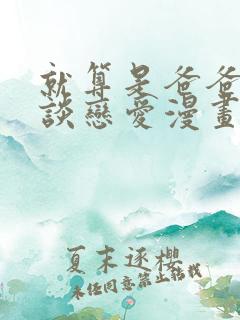 就算是爸爸
談戀愛漫畫
夏末逐櫻
未经同意禁止转载